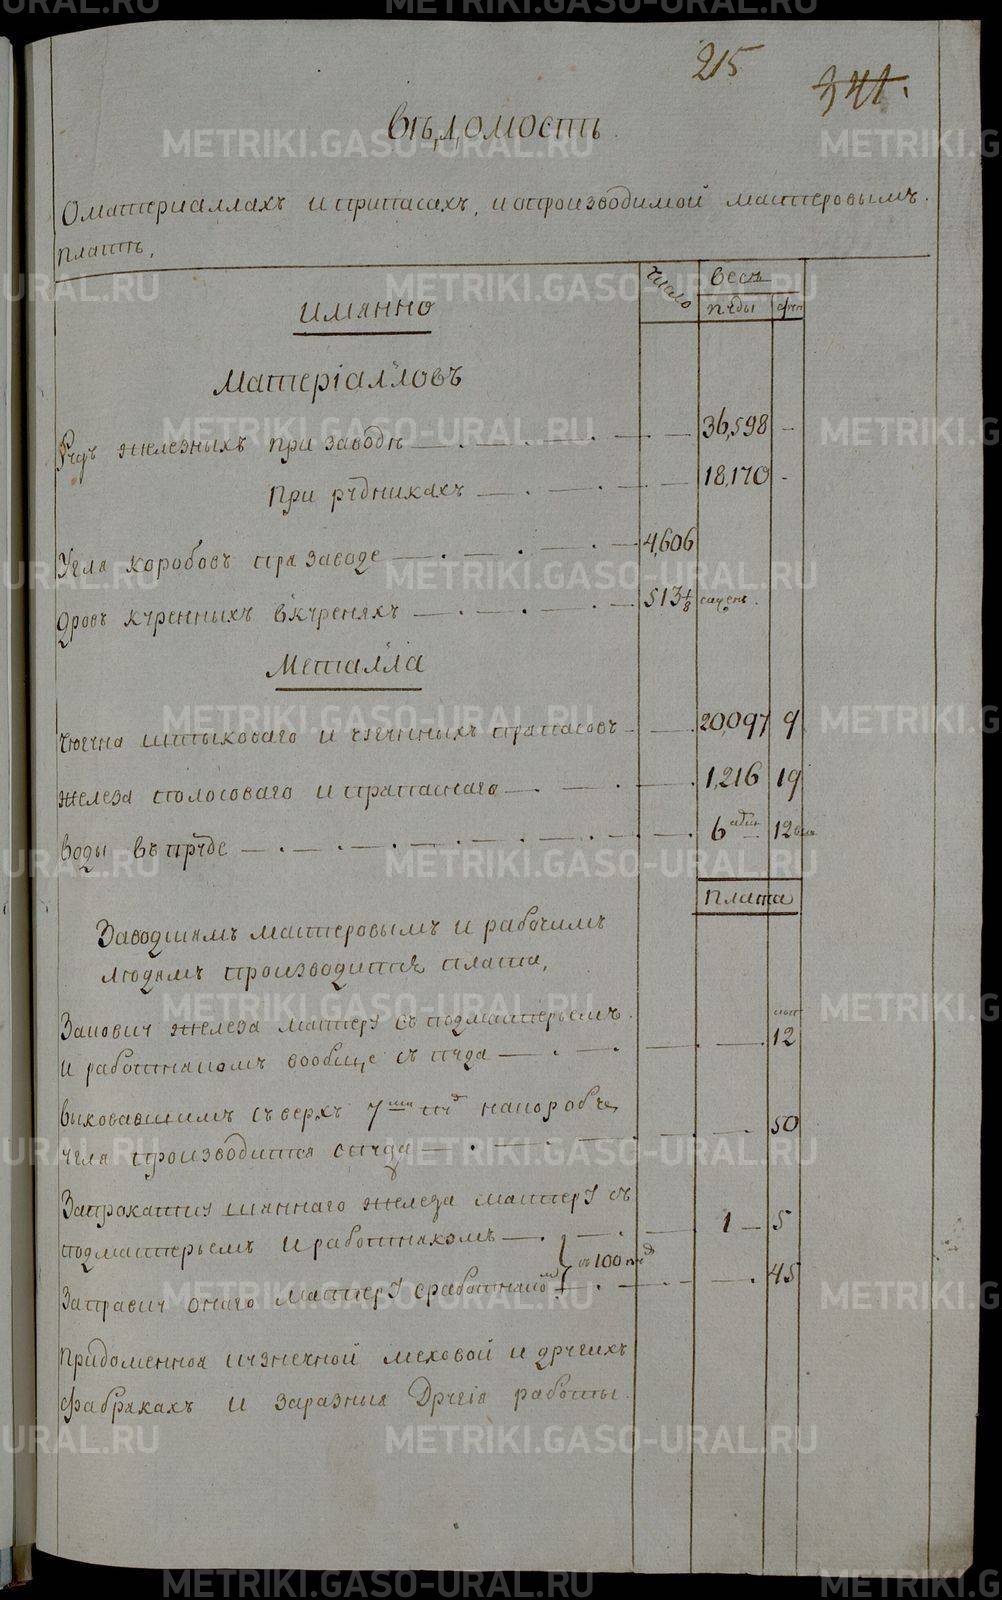 215
341.
Вѣдомость
О материаллахъ и припасахъ, и опроизводимой мастеровымъ
платѣ,
число
весъ
имянно
пуды
фун
Матеріалловъ
Рудъ железныхъ при заводѣ 36,598
При рудникахъ 18,170
Угля коробовъ при заводе 4,606
Дровъ куренныхъ вкуреняхъ 513 1/8 сажень.
Металла
Чюгуна штыковаго и чюгунныхъ припасовъ 20,097 9
железа полосоваго и припаснаго 1,216 19
воды въ пруде 6 аршин 12
плата
Заводскимъ мастеровымъ и рабочимъ
людямъ производится плата,
Заковку железа мастеру съ подмастерьемъ
и работникомъ вообще съ пуда 12
выковавшимъ сверхъ 7 ми пуд накоробъ
угля производится спуда 50
Запрокатку шиннаго железа мастеру съ
подмастерьемъ и работникомъ 1 5
съ 100 пуд
Заправку онаго мастеру сработником 45
При доменной кузнечной меховой и другихъ
фабрикахъ и заразныя Другія работы.
METRIKI.GASO-URAL.RU